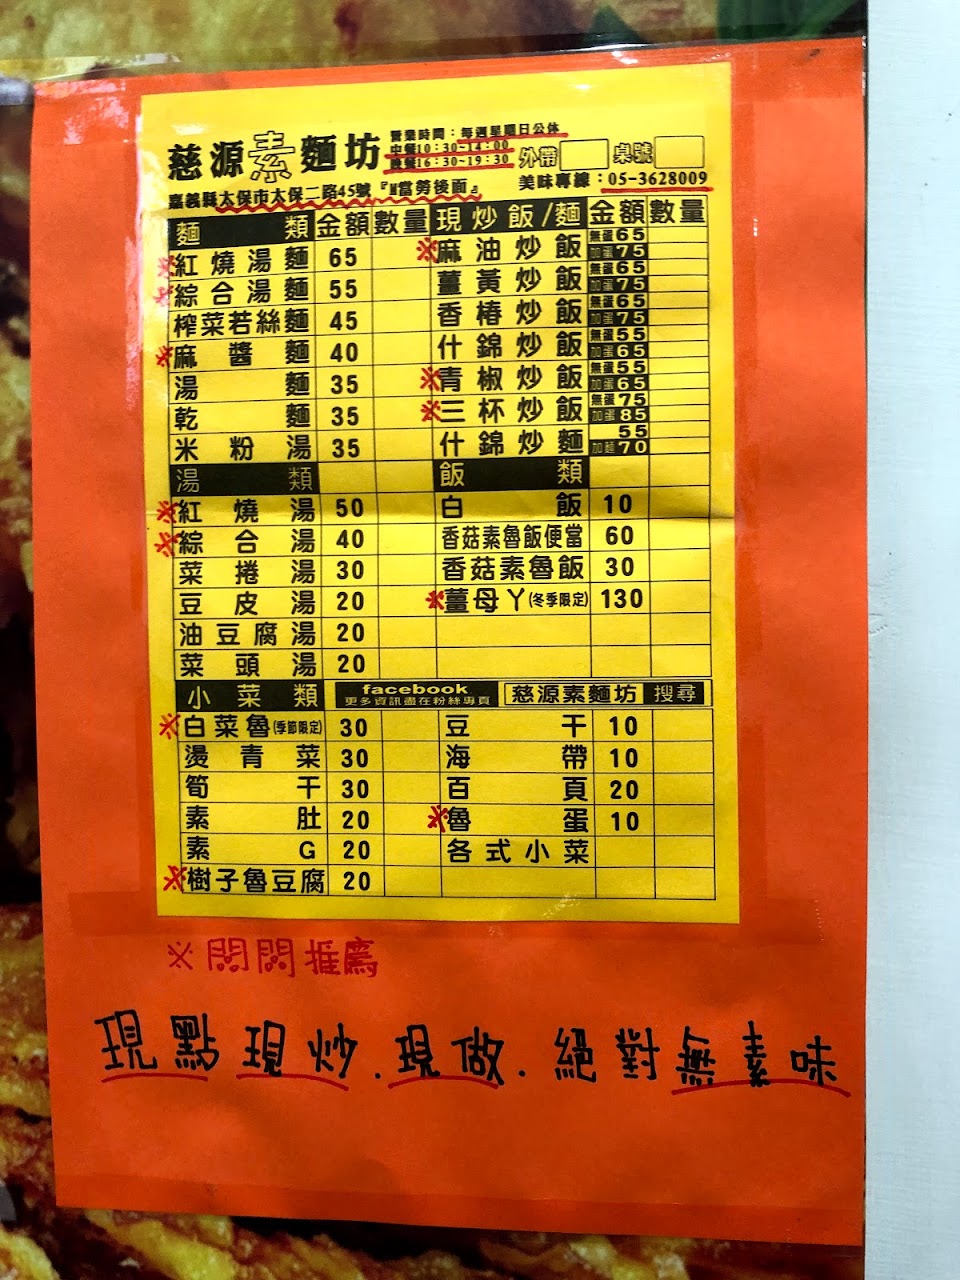 慈源素麵坊
營業時間：每週星期日公休
中餐10:30~14:00
晚餐16:30~19:30
外帶 桌號
嘉義縣太保市太保二路45號『M當勞後面』
美味專線：05-3628009
麵類 金額 數量 現炒飯/麵 金額 數量
※紅燒湯麵 65 ※麻油炒飯 無蛋65 加蛋75
※綜合湯麵 55 薑黃炒飯 無蛋65 加蛋75
榨菜若絲麵 45 香椿炒飯 無蛋65 加蛋75
※麻醬麵 40 什錦炒飯 無蛋55 加蛋65
湯麵 35 ※青椒炒飯 無蛋55 加蛋65
乾麵 35 ※三杯炒飯 無蛋75 加蛋85
米粉湯 35 什錦炒麵 55 加麵70
湯類 飯類
※紅燒湯 50 白飯 10
※綜合湯 40 香菇素魯飯便當 60
菜捲湯 30 香菇素魯飯 30
豆皮湯 20 ※薑母ㄚ(冬季限定) 130
油豆腐湯 20
菜頭湯 20
小菜類 facebook 更多資訊盡在粉絲專頁 慈源素麵坊 搜尋
※白菜魯(季節限定) 30 豆干 10
燙青菜 30 海帶 10
筍干 30 百頁 20
素肚 20 ※魯蛋 10
素G 20 各式小菜
※樹子魯豆腐 20
※闆闆推薦
現點現炒.現做.絕對無素味